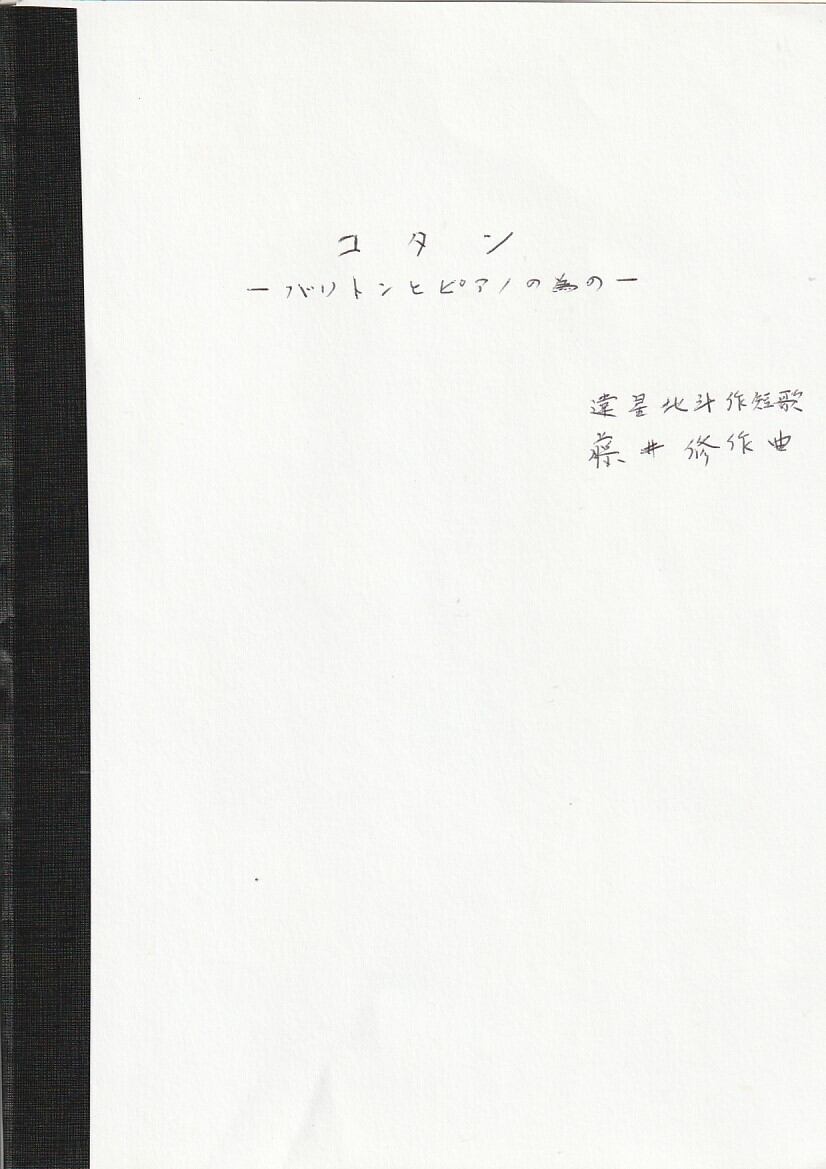 コタン
ーバリトンとピアノの為のー
違星北斗作短歌
藤井修作曲